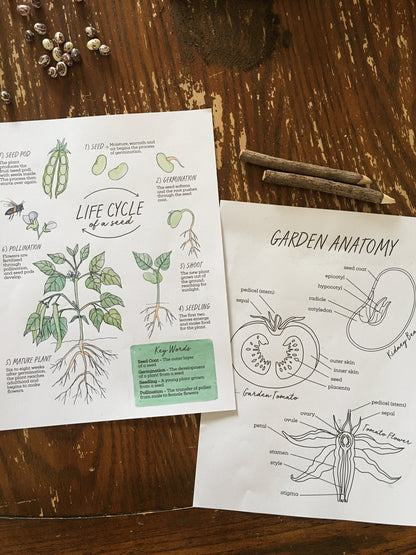 LIFE CYCLE
of a seed
1) SEED
Moisture, warmth and
air begins the process
of germination.
2) GERMINATION
The seed softens
and the root pushes
through the seed
coat.
3) SHOOT
The new plant
grows out of
the ground,
reaching for
sunlight.
4) SEEDLING
The first two
leaves emerge
and make food
for the plant.
5) MATURE PLANT
Six to eight weeks
after germination,
the plant reaches
adulthood and
begins to make
flowers.
6) POLLINATION
Flowers are
fertilized
through
pollination,
and seed pods
develop.
7) SEED POD
The plant
produces the
fruit (seed pod),
with seeds inside.
The process then
starts over again.
Key Words
Seed Coat - The outer layer
of a seed
Germination - The development
of a plant from a seed
Seedling - A young plant grown
from a seed
Pollination - The transfer of pollen
from male to female flowers
GARDEN ANATOMY
seed coat
epicotyl
hypocotyl
radicle
cotyledon
Kidney Bean
pedical (stem)
sepal
outer skin
inner skin
seed
placenta
Garden Tomato
pedical (stem)
sepal
ovary
ovule
petal
stamen
style
stigma
Tomato Flower